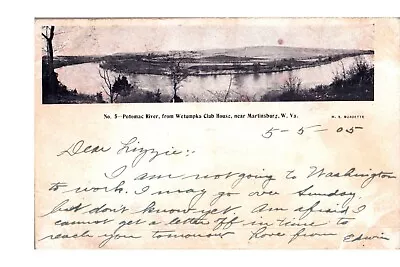 No. 5—Potomac River, from Wetumpka Club House, near Martinsburg, W. Va.
M. S. BURDETTE
5-5-05
Dear Lizzie:-
I am not going to Washington
to work. I may go over Sunday
but don't know yet. Am afraid I
cannot get a letter off in time to
reach you tomorrow Love from Edwin